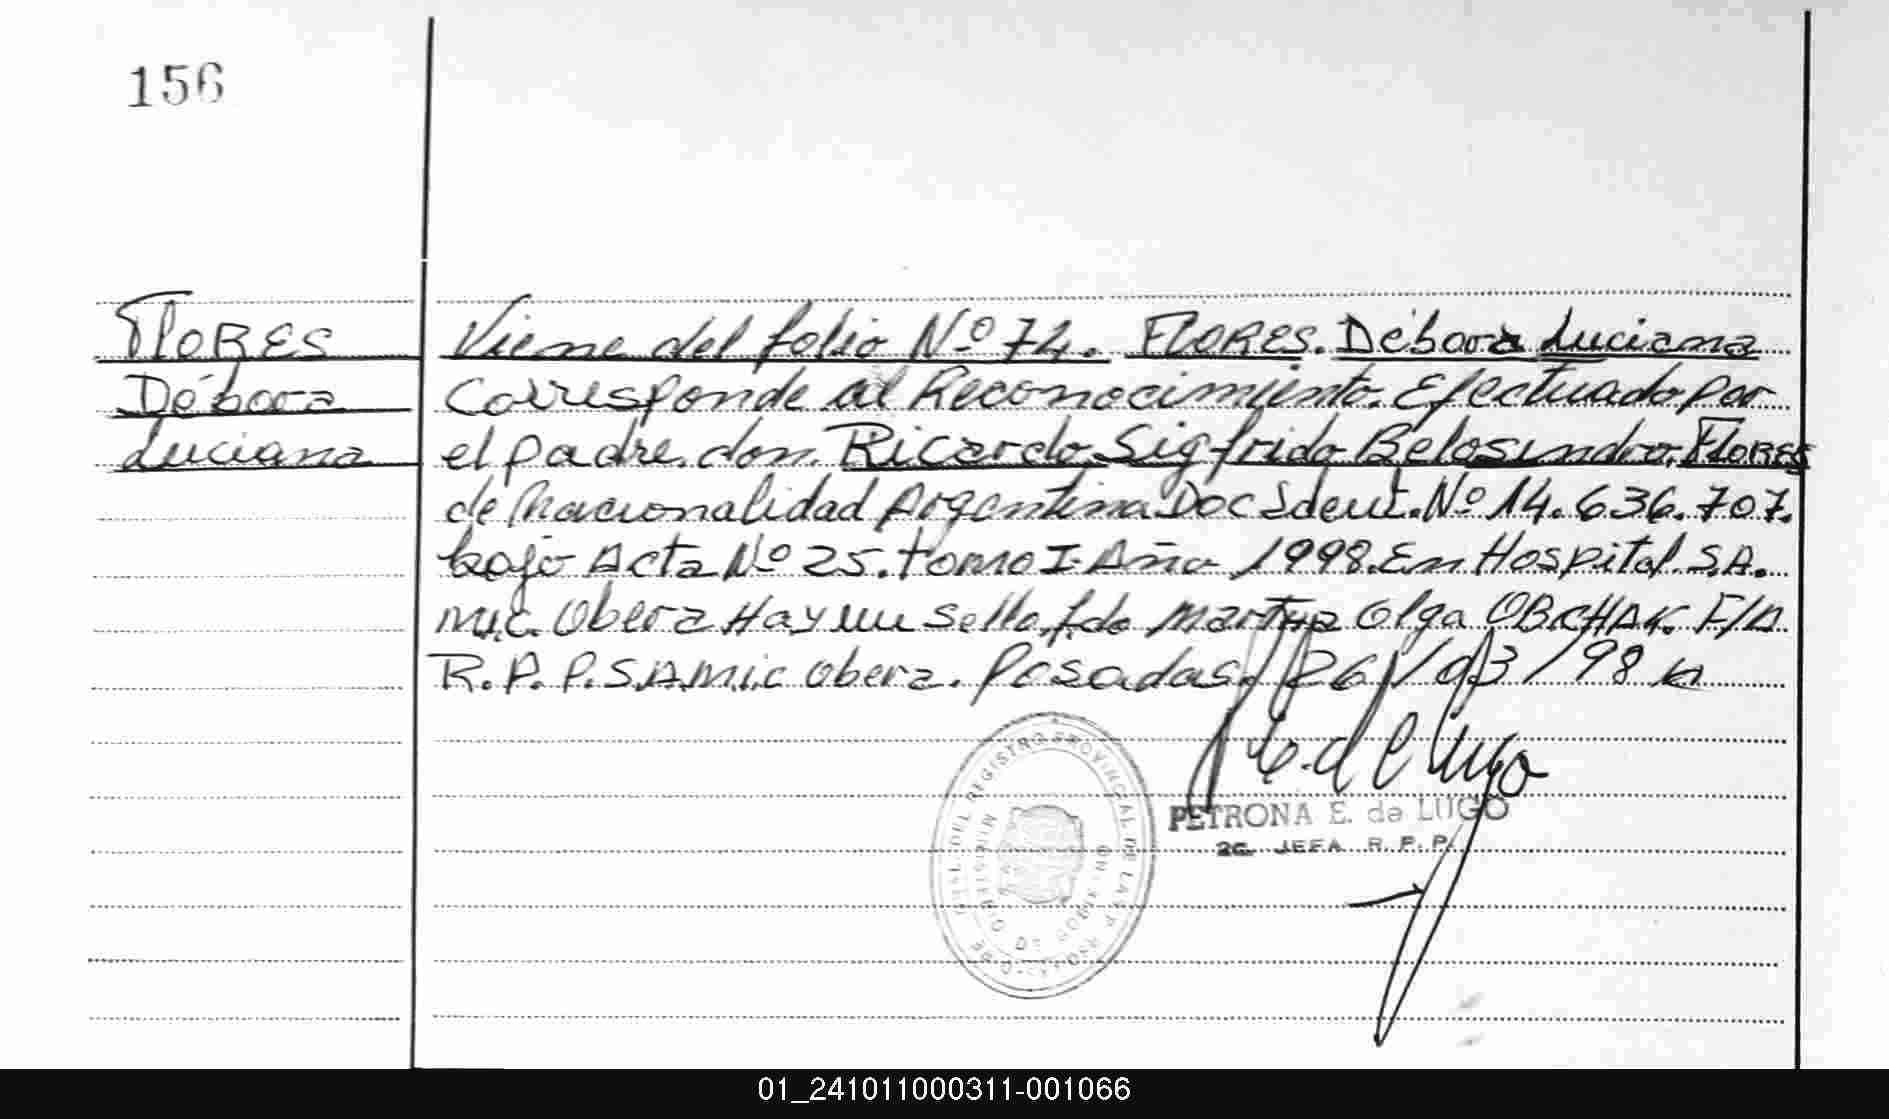 156
FLORES
Débora
Luciana
Viene del folio Nº 74. FLORES. Débora Luciana
Corresponde al Reconocimiento. Efectuado por
el padre. don. Ricardo Sigfrido Belosindro. FLORES
de Nacionalidad Argentina Doc Ident. Nº 14.636.707.
bajo Acta Nº 25. tomo I. Año 1998. En Hospital. S.A.
M.i.c. Obera Hay un sello. fdo Martha Olga OBCHAK. F/A
R.P.P. S.A.M.i.c Obera. Posadas. 26/03/98
de Lugo
PETRONA E. de LUGO
JEFA R.P.P.
DEL REGISTRO PROVINCIAL DE LAS PERSONAS
MINISTERIO DE GOBIERNO
01_241011000311-001066